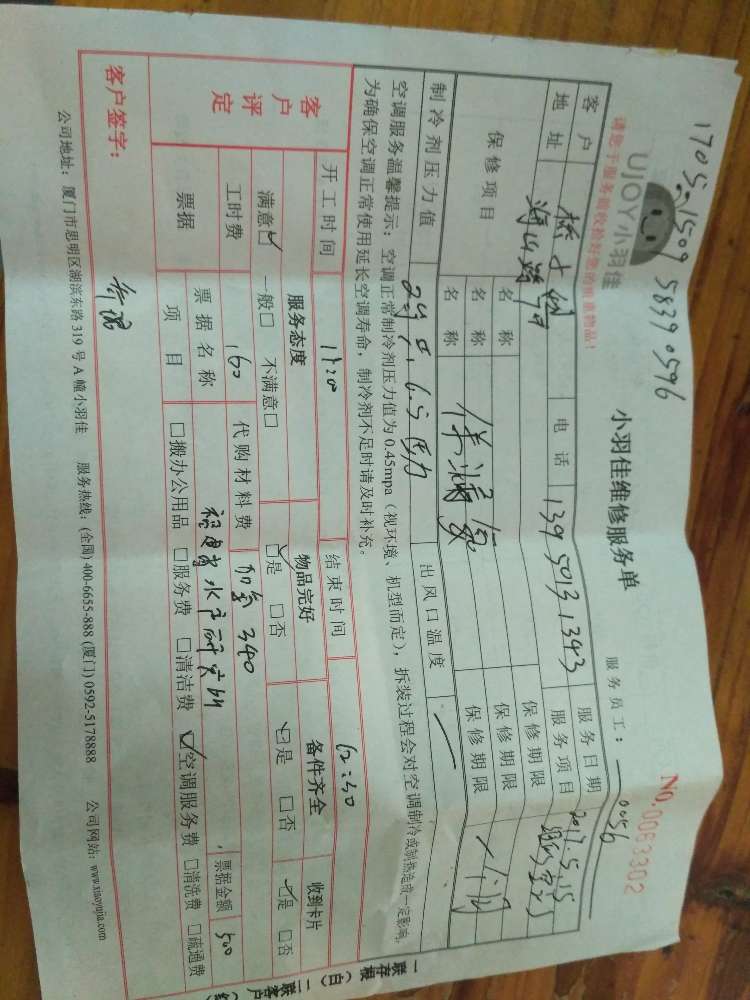 1705.1509 58390596
UJOY小羽佳
小羽佳维修服务单
No.0083302
请您于服务前收拾好您的贵重物品!
服务员工: 0056
客户 电话 13950131343 服务日期 2017.5.15
地址 海山路 服务项目
保修项目 名称 保修期限
名称 保修期限
名称 保修期限
制冷剂压力值 出风口温度
空调服务温馨提示: 空调正常制冷剂压力值为0.45mpa(视环境、机型而定), 拆装过程会对空调制冷或制热造成一定影响,
为确保空调正常使用延长空调寿命, 制冷剂不足时请及时补充。
开工时间 11:20 结束时间 12:30
客户评定 服务态度 物品完好 备件齐全 收到卡片
满意☑ 一般□ 不满意□ ☑是 □否 ☑是 □否 ☑是 □否
工时费 160 代购材料费 加氟340
票据 票据名称 福建省水产研究所 票据金额 500
项目 □搬办公用品 □服务费 □清洁费 ☑空调服务费 □清洗费 □疏通费
客户签字:
公司地址: 厦门市思明区湖滨东路319号A幢小羽佳 服务热线: (全国) 400-6655-888 (厦门) 0592-5178888 公司网站: www.xiaoyujia.com
一联存根(白) 二联客户